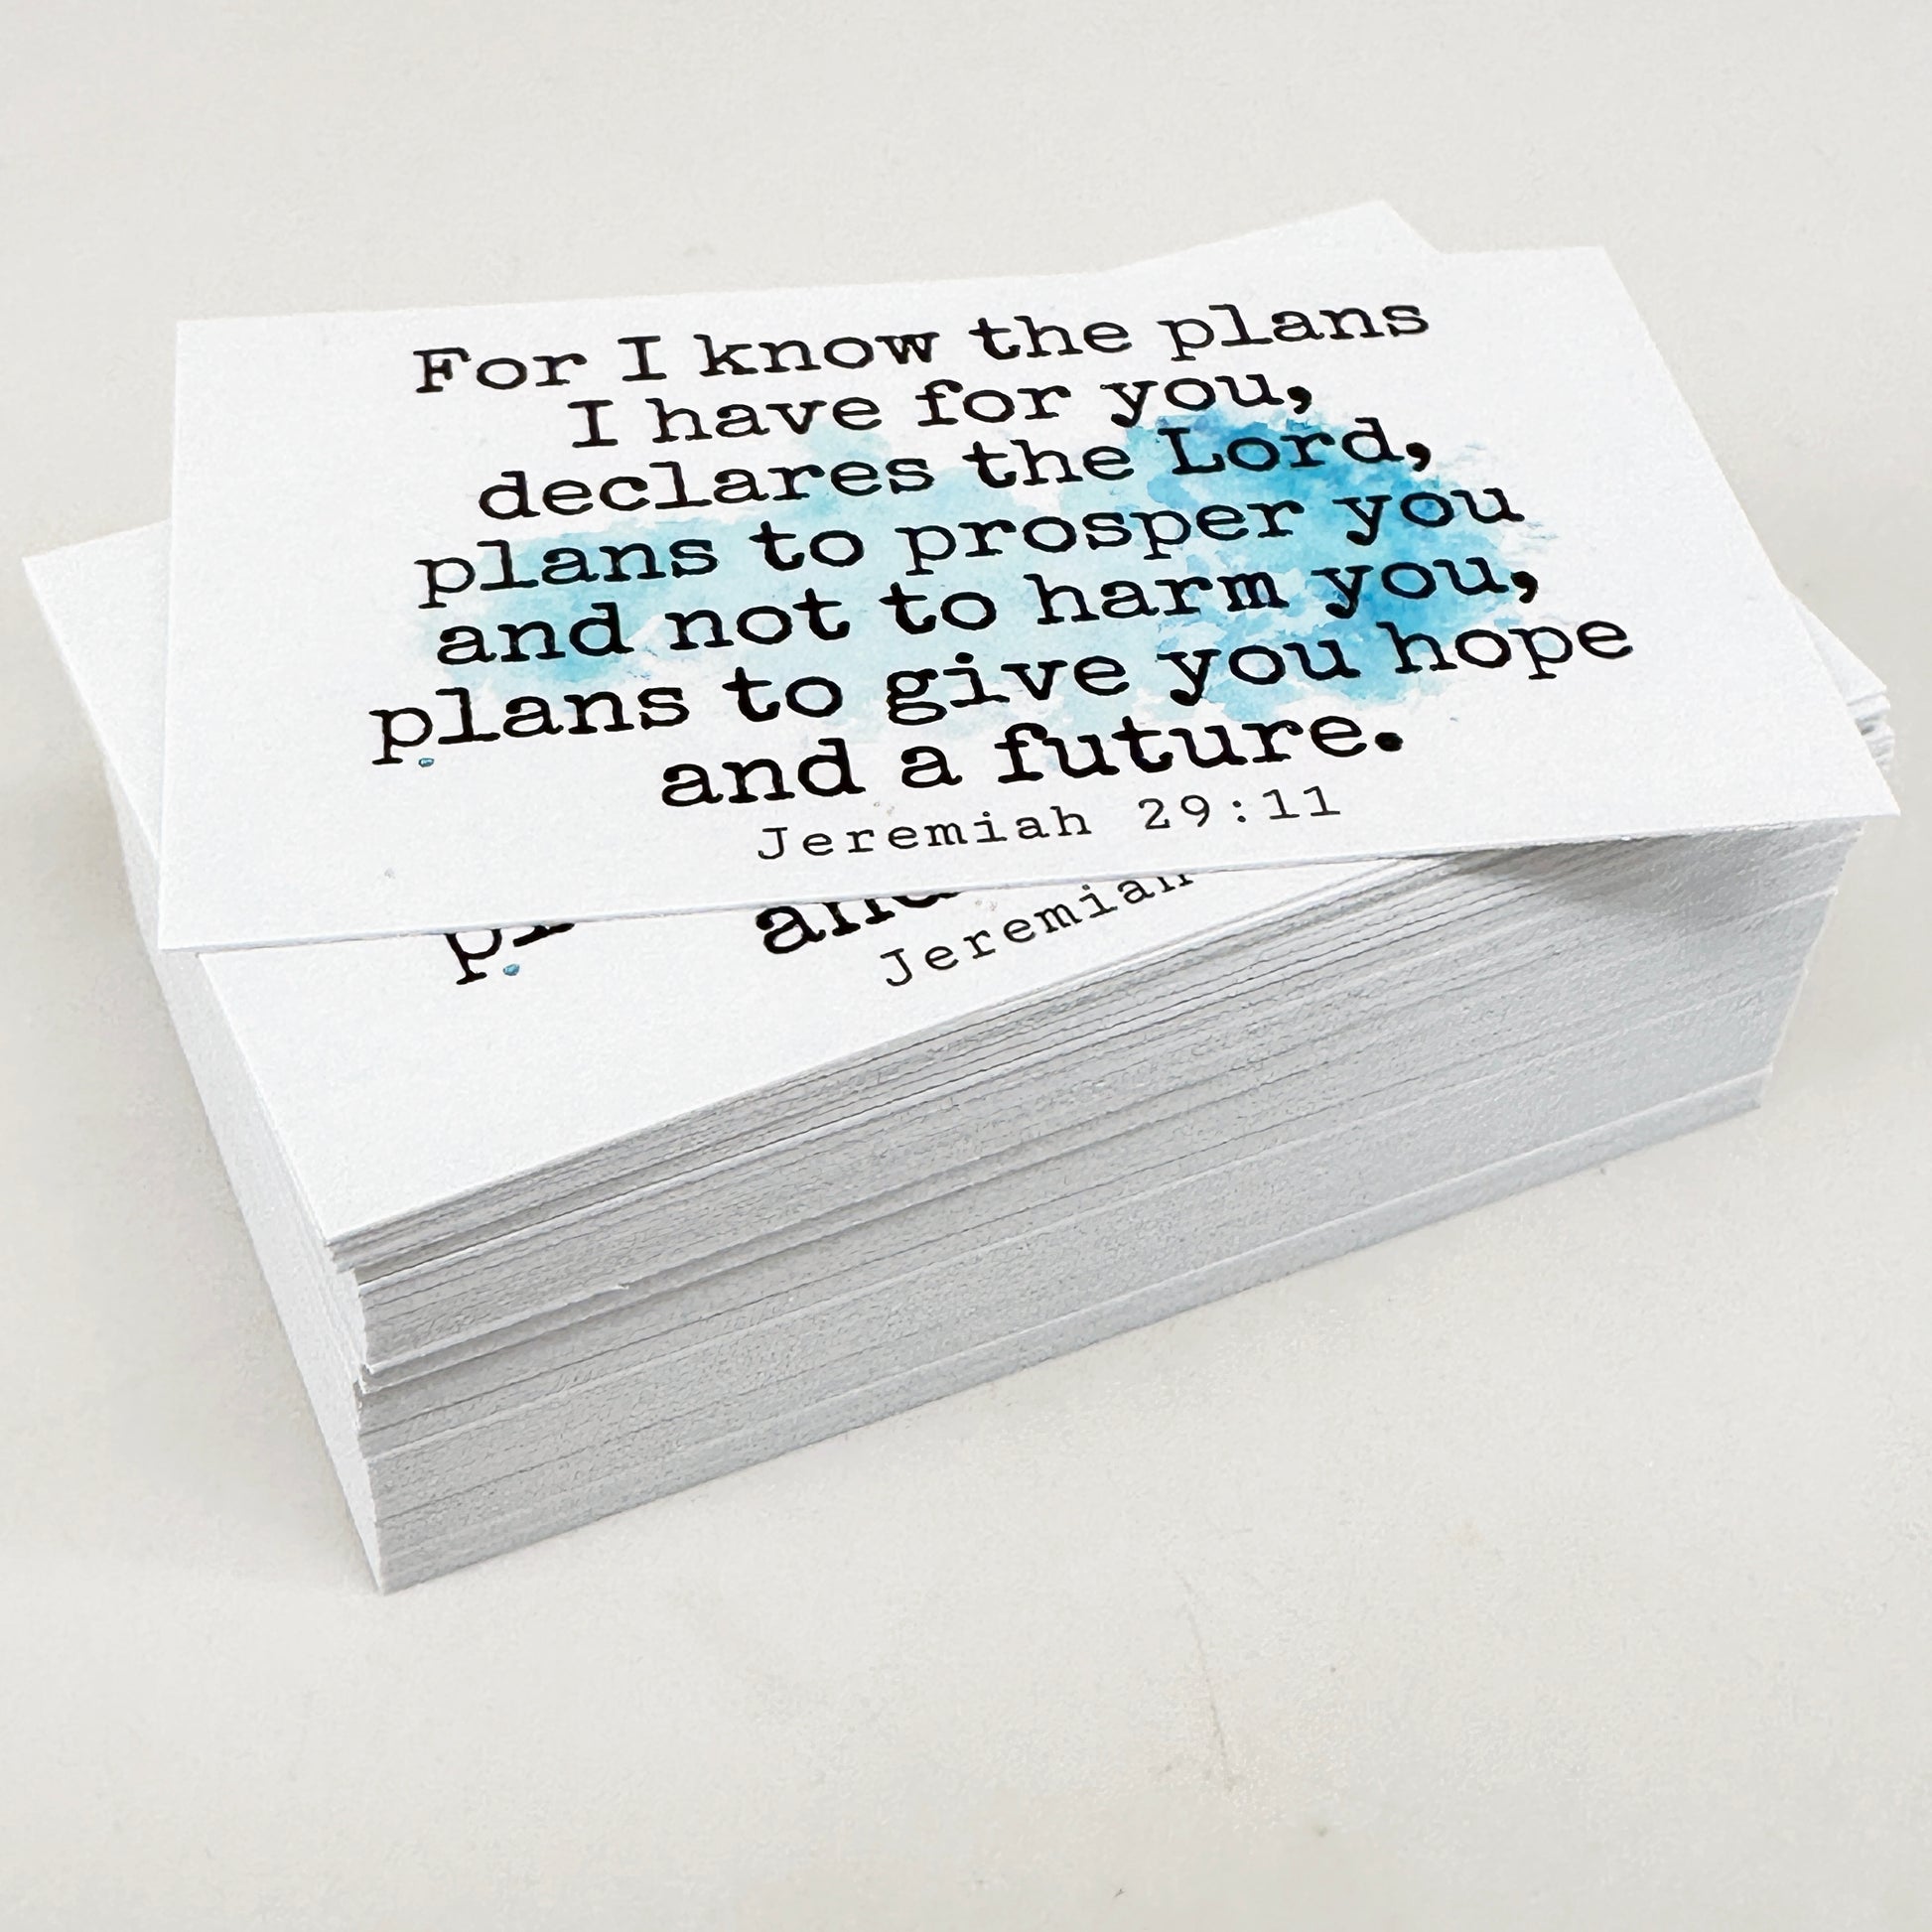 For I know the plans
I have for you,
declares the Lord,
plans to prosper you
and not to harm you,
plans to give you hope
and a future.
Jeremiah 29:11
and
Jeremiah